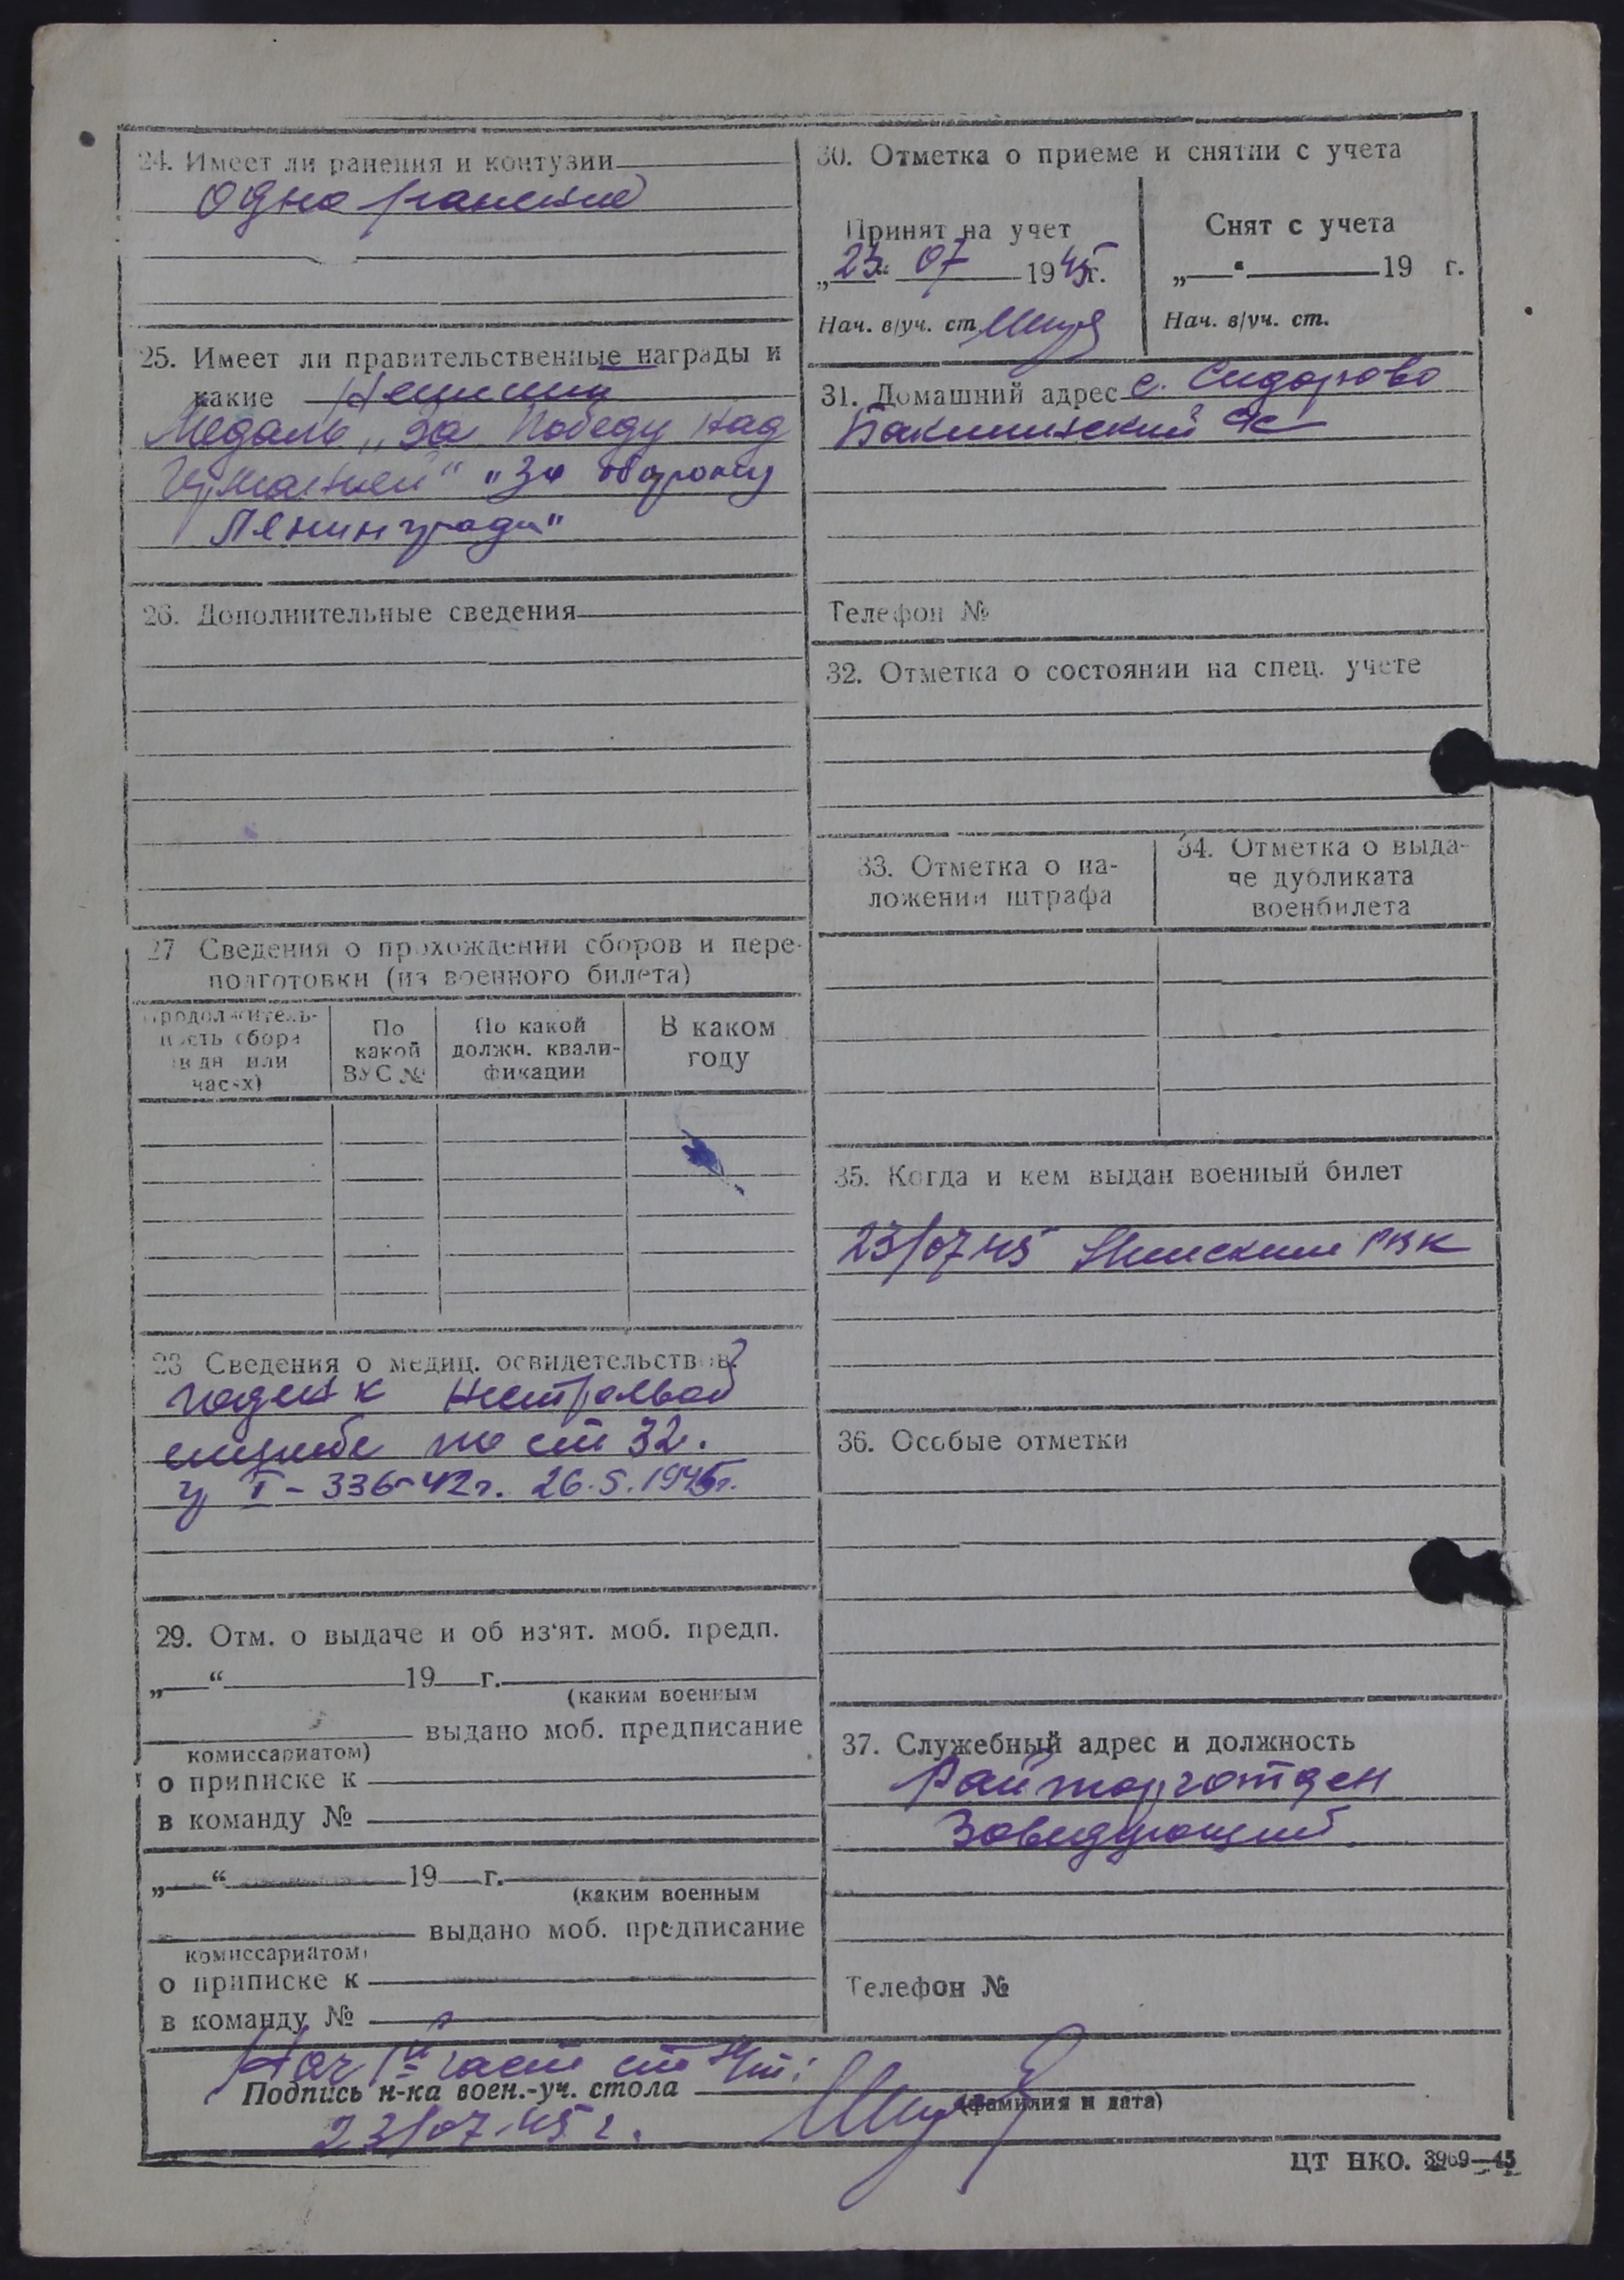 24. Имеет ли ранения и контузии
Одно ранение
25. Имеет ли правительственные награды и
какие
Медаль „За Победу над
Германией“ "За оборону
Ленинграда"
26. Дополнительные сведения
27 Сведения о прохождении сборов и пере-
подготовки (из военного билета)
Продолжитель-
ность сбора
(в дн или
часах)
По
какой
ВУС №
По какой
должн. квали-
фикации
В каком
году
28 Сведения о медиц. освидетельствов.
годен к нестроевой
службе по ст 32.
I - 336-42г. 26.5.1945г.
29. Отм. о выдаче и об из'ят. моб. предп.
„ “ 19 г.
(каким военным
выдано моб. предписание
комиссариатом)
о приписке к
в команду №
„ “ 19 г.
(каким военным
выдано моб. предписание
комиссариатом)
о приписке к
в команду №
30. Отметка о приеме и снятии с учета
Принят на учет
„23“ 07 1945г.
Нач. в/уч. ст.
Снят с учета
„ “ 19 г.
Нач. в/уч. ст.
31. Домашний адрес с. Сидорово
Телефон №
32. Отметка о состоянии на спец. учете
33. Отметка о на-
ложении штрафа
34. Отметка о выда-
че дубликата
военбилета
35. Когда и кем выдан военный билет
23/07 45 РВК
36. Особые отметки
37. Служебный адрес и должность
Райторготдел
Заведующий
Телефон №
Нач 1й части ст
Подпись н-ка воен.-уч. стола
(фамилия и дата)
23/07-45 г.
ЦТ НКО. 3969—45